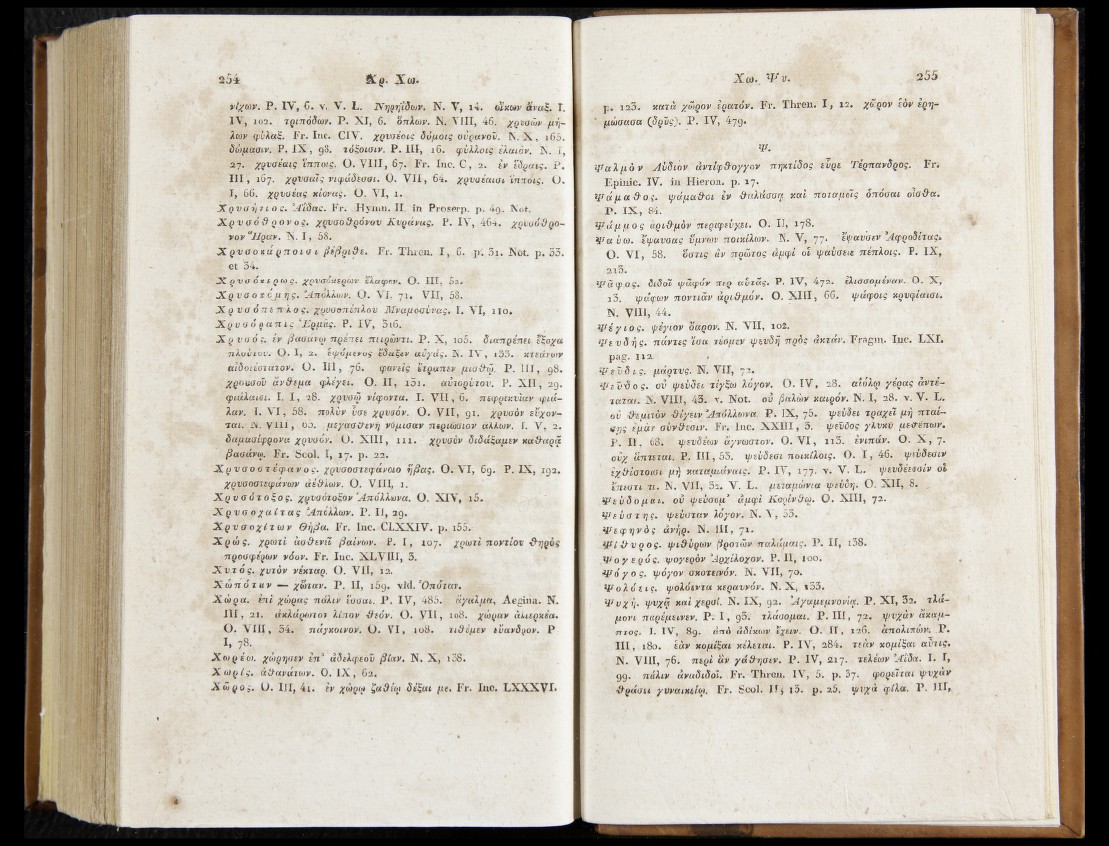 254 Χρ. Χω.
νίχων. P. IV, 6. v. V. L. Νηρηΐδων. N. V, 14. οἴκων ἄναξ. I.
IV, 102. τριπόδων. P. XI, 6. ὅπλων. N. VIII, 46. χρυσῶν μή-
λων φύλαξ. Fr. Inc. CIV. χρυσέοις δόμοις οὐρανοῦ. N. X. 165.
δώμασιν. P. IX, 98. τόξοισιν. P. III, 16. φύλλοις ἐλαιᾶν. N. I,
27. χρυσέαις ἵπποις. O. VIII, 67. Fr. Inc. C, 2. ἐν ἕδραις. P.
III, 167. χρυσαῖς νιφάδεσσι. O. VII, 64. χρυσέαισι ἵπποις. O.
I, 66. χρυσέας κίονας. O. VI, 1.
Χρυσήνιος. Ἀΐδας. Fr. Hymn. II in Proserp. p. 49. Not.
Χρυσόθρονος. χρυσοθρόνου Κυράνας. P. IV, 464. χρυσόθρο-
νον Ἥραν. N. I, 58.
Χρυσοκάρποισι βέβριθε. Fr. Thren. I, 6. p. 31. Not. p. 33.
et 34.
Χρυσόκερως. χρυσόκερων ἔλαφεν. O. III, 52
Χρυσοκόμης. Ἀπόλλων. O. VI. 71. VII, 58.
Χρυσόπεπλος. χρυσοπέπλου Μναμοσύνας. I. VI, 110.
Χρυσόραπις Ἑρμᾶς. P. IV, 316.
Χρυσός. ἐν βασάνῳ πρέπει πειρῶντι. P. X, 105. διαπρέπει ἔξοχα
πλούτου. O. I, 2. ἑψόμενος ἔδαξεν αὐγάς. N. IV, 133. κτεάνων
αἰδοιέστατον. O. III, 76. φανεὶς ἔτραπεν μισθῷ. P. III, 98.
χρουσοῦ ἄνθεμα φλέγει. O. II, 131. αὐτορύτου. P. XII, 29.
φιάλαισι. I. I, 28. χρυσῷ νίφοντα. I. VII, 6. πεφρικυῖαν φιά-
λαν. I. VI, 58. πολὺν ὗσε χρυσόν. O. VII, 91. χρυσὸν εὔχον-
ται. N. VIII, 63. μεγασθενῆ νόμισαν περιώσιον ἄλλων. I. V, 2.
δαμασίφρονα χρυσόν. O. XIII, 111. χρυσὸν διδάξαμεν καθαρᾷ
βασάνῳ. Fr. Scol. I, 17. p. 22.
Χρυσοστέφανος. χρυσοστεφάνοιο ἥβας. O. VI, 69. P. IX, 192.
χρυσοστεφάνων ἀέθλων. O. VIII, 1.
Χρυσότοξος. χρυσότοξον Ἀπόλλωνα. O. XIV, 15.
Χρυσοχαίτας Ἀπόλλων. P. II, 29.
Χρυσοχίτων Θήβα. Fr. Inc. CLXXIV. p. 155.
Χρώς. χρωτὶ ἀσθενῖ βαίνων. P. I, 107. χρωτὶ ποντίου θηρὸς
προσφέρων νόον. Fr. Inc. XLVIII, 3.
Χυτός. χυτὸν νέκταρ. O. VII, 12.
Χὠπόταν — χὦταν. P. II, 159. vid. Ὁπόταν.
Χώρα. ἐπὶ χώρας πάλιν ἕσσαι. P. IV, 485. ἄγαλμα, Aegina. N.
III, 21. ἀκλάρωτον λίπον θεόν. O. VII, 108. χώραν ἁλιερκέα.
O. VIII, 34. πάγκοινον. O. VI, 108. τιθέμεν εὔανδρον. P
I, 78.
Χωρέω. χώρησεν ἐπ' ἀδελφεοῦ βίαν. N. X, 138.
Χωρίς. ἀθανάτων. O. IX, 62.
Χῶρος. O. III, 41. ἐν χώρῳ ζαθέῳ δέξαι με. Fr. Inc. LXXXVI.
Χω. Ψυ. 255
p. 123. κατὰ χῶρον ἐρατόν. Fr. Thren. I, 12. χῶρον ἐὸν ἐρη-
μώσασα (δρῦς). P. IV, 479.
Ψ.
Ψαλμὸν Λύδιον ἀντίφθογγον πηκτίδος εὗρε Τέρπανδρος. Fr.
Epinic. IV. in Hieron. p. 17.
Ψάμαθος. ψάμαθοι ἐν θαλάσσῃ καὶ ποταμοῖς ὁπόσαι οἶσθα.
P. IX, 84.
Ψάμμος ἀριθμὸν περιφεύγει. O. II, 178.
Ψαύω. ἔψαυσας ὕμνων ποικίλων. N. V, 77. ἔψαυσεν Ἀφροδίτας.
O. VI, 58. ὅστις ἂν πρῶτος ἀμφί οἱ ψαύσειε πέπλοις. P. IX,
213.
Ψᾶφος. διδοῖ ψᾶφόν περ αὐτᾶς. P. IV, 472. ἑλισσομέναν. O. X,
13. ψάφων ποντιᾶν ἀριθμόν. O. XIII, 66. ψάφοις κρυφίαισι.
N. VIII, 44.
Ψέγιος. ψέγιον ὄαρον. N. VII, 102.
Ψευδής. πάντες ἴσα νέομεν ψευδῆ πρὸς ἀκτάν. Fragm. Inc. LXI.
pag. 112.
Ψεῦδις. μάρτυς. N. VII, 72.
Ψεῦδος. οὐ ψεύδει τέγξω λόγον. O. IV, 28. αἰόλῳ γέρας ἀντέ-
ταται. N. VIII, 43. v. Not. οὐ βαλὼν καιρόν. N. I, 28. v. V. L.
οὐ θεμιτὸν θίγειν Ἀπόλλωνα. P. IX, 75. ψεύδει τραχεῖ μὴ πταί-
σῃς ἐμὰν σύνθεσιν. Fr. Inc. XXIII, 3. ψεῦδος γλυκὺ μεθέπων.
P. II, 68. ψευδέων ἄγνωστον. O. VI, 113. ἐνιπάν. O. X, 7.
οὐχ ἅπτεται. P. III, 53. ψεύδεσι ποικίλοις. O. I, 46. ψεύδεσιν
ἐχθίστοισι μὴ καταμιάναις. P. IV, 177. v. V. L. ψευδέεσσίν οἱ
ἔπεστί τι. N. VII, 32. V. L. μεταμώνια ψεύδη. O. XII, 8.
Ψεύδομαι. οὐ ψεύσομ' ἀμφὶ Κορίνθῳ. O. XIII, 72.
Ψεύστης. ψεύσταν λόγον. N. V, 53.
Ψεφηνὸς ἀνήρ. N. III, 71.
Ψίθυρος. ψιθύρων βροτῶν παλάμαις. P. II, 138.
Ψογερός. ψογερὸν Ἀρχίλοχον. P. II, 100.
Ψόγος. ψόγον σκοτεινόν. N. VII, 70.
Ψολόεις. ψολόεντα κεραυνόν. N. X, 133.
Ψυχή. ψυχᾷ καὶ χερσί. N. IX, 92. Ἀγαμεμνονίᾳ. P. XI, 32. τλά-
μονι παρέμεινεν. P. I, 93. τλάσομαι. P. III, 72. ψυχὰν ἄκαμ-
πτος. I. IV, 89. ἀπὸ ἀδίκων ἔχειν. O. II, 126. ἀπολιπών. P.
III, 180. ἑὰν κομίξαι κέλεται. P. IV, 284. τεὰν κομίξαι αὖτις.
N. VIII, 76. περὶ ἂν γάθησεν. P. IV, 217. τελέων Ἀΐδα. I. I,
99. πάλιν ἀναδιδοῖ. Fr. Thren. IV, 5. p. 37. φορεῖται ψυχὰν
θράσει γυναικείῳ. Fr. Scol. II, 13. p. 25. ψυχὰ φίλα. P. III,